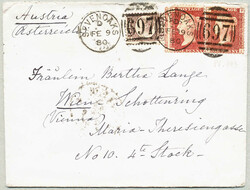 Austria
(Österreich)
SEVENOAKS
FE 9
80
697
697
Fräulein Bertha Lange.
Wien Schottenring
Vienna
Maria-Theresiengasse
No 10. 4te Stock.